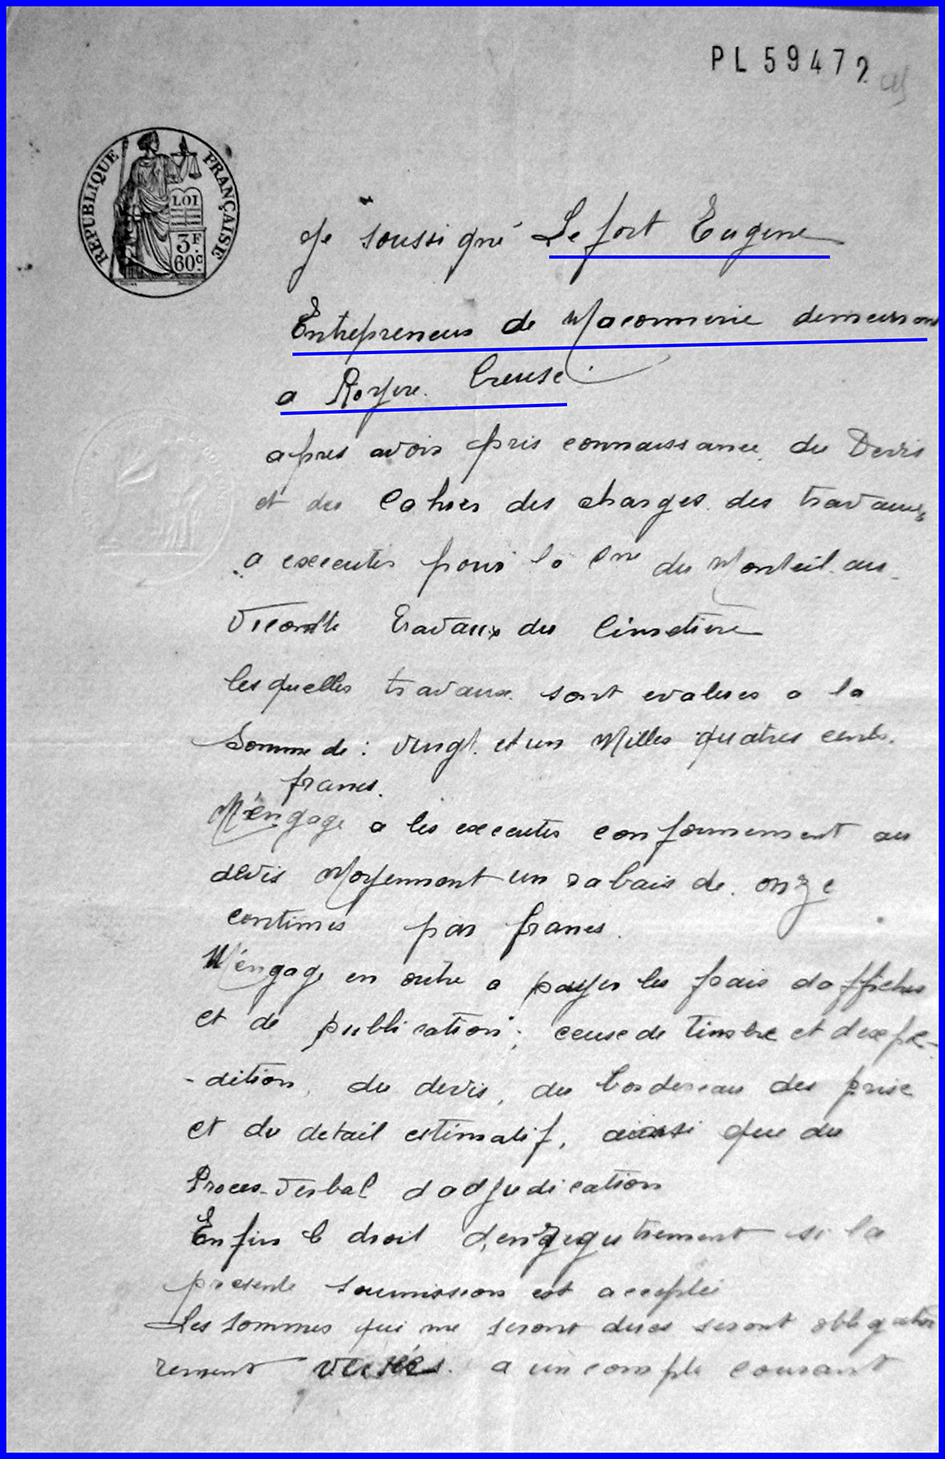 PL 59472
RÉPUBLIQUE FRANÇAISE
LOI
3F
60c
Je soussigné Lefort Eugene
Entrepreneur de Maconnerie demeurant
a Royere. Creuse.
apres avoir pris connaissance du Devis
et du Cahier des charges des travaux
a executer pour la Cne du Monteil au
Vicomte Travaux du Cimetière
lesquelles travaux sont evalues a la
Somme de : vingt et un Milles quatres cents.
francs.
M'engage a les executer conformement au
devis Moyennant un rabais de onze
centimes par francs.
M'engage en outre a payer les frais d'affiches
et de publication, ceuse de timbre et d'expe-
-dition, du devis, du bordereau des prise
et du detail estimatif, ainsi que du
Proces-Verbal d'adjudication
Enfin le droit d'enregistrement si la
presente soumission est acceptée
Les sommes qui me seront dues seront obligatoi
rement versées a un compte courant